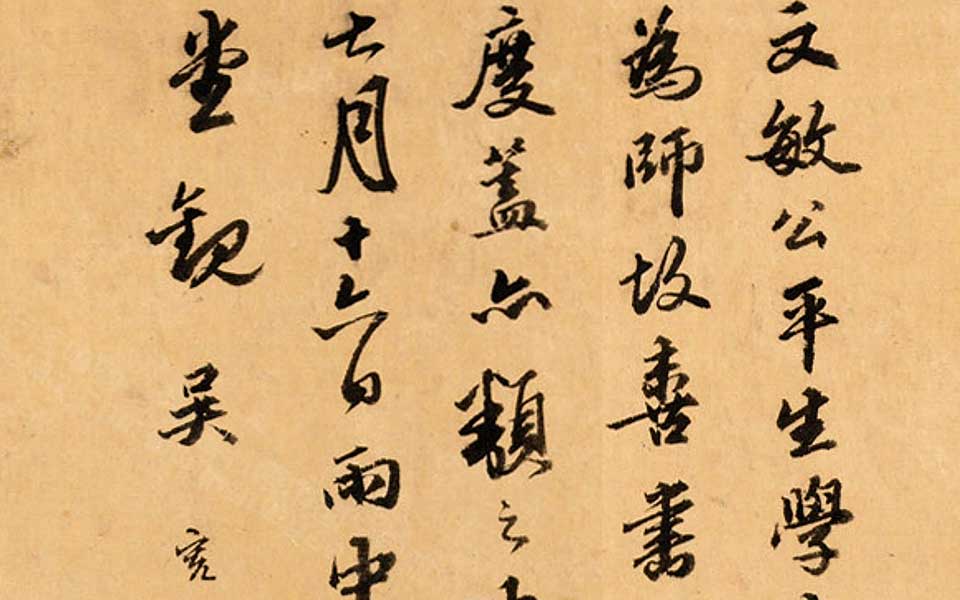 文敏公平生學
為師故喜書
度蓋亦類之
七月十六日雨中
堂觀吳寬